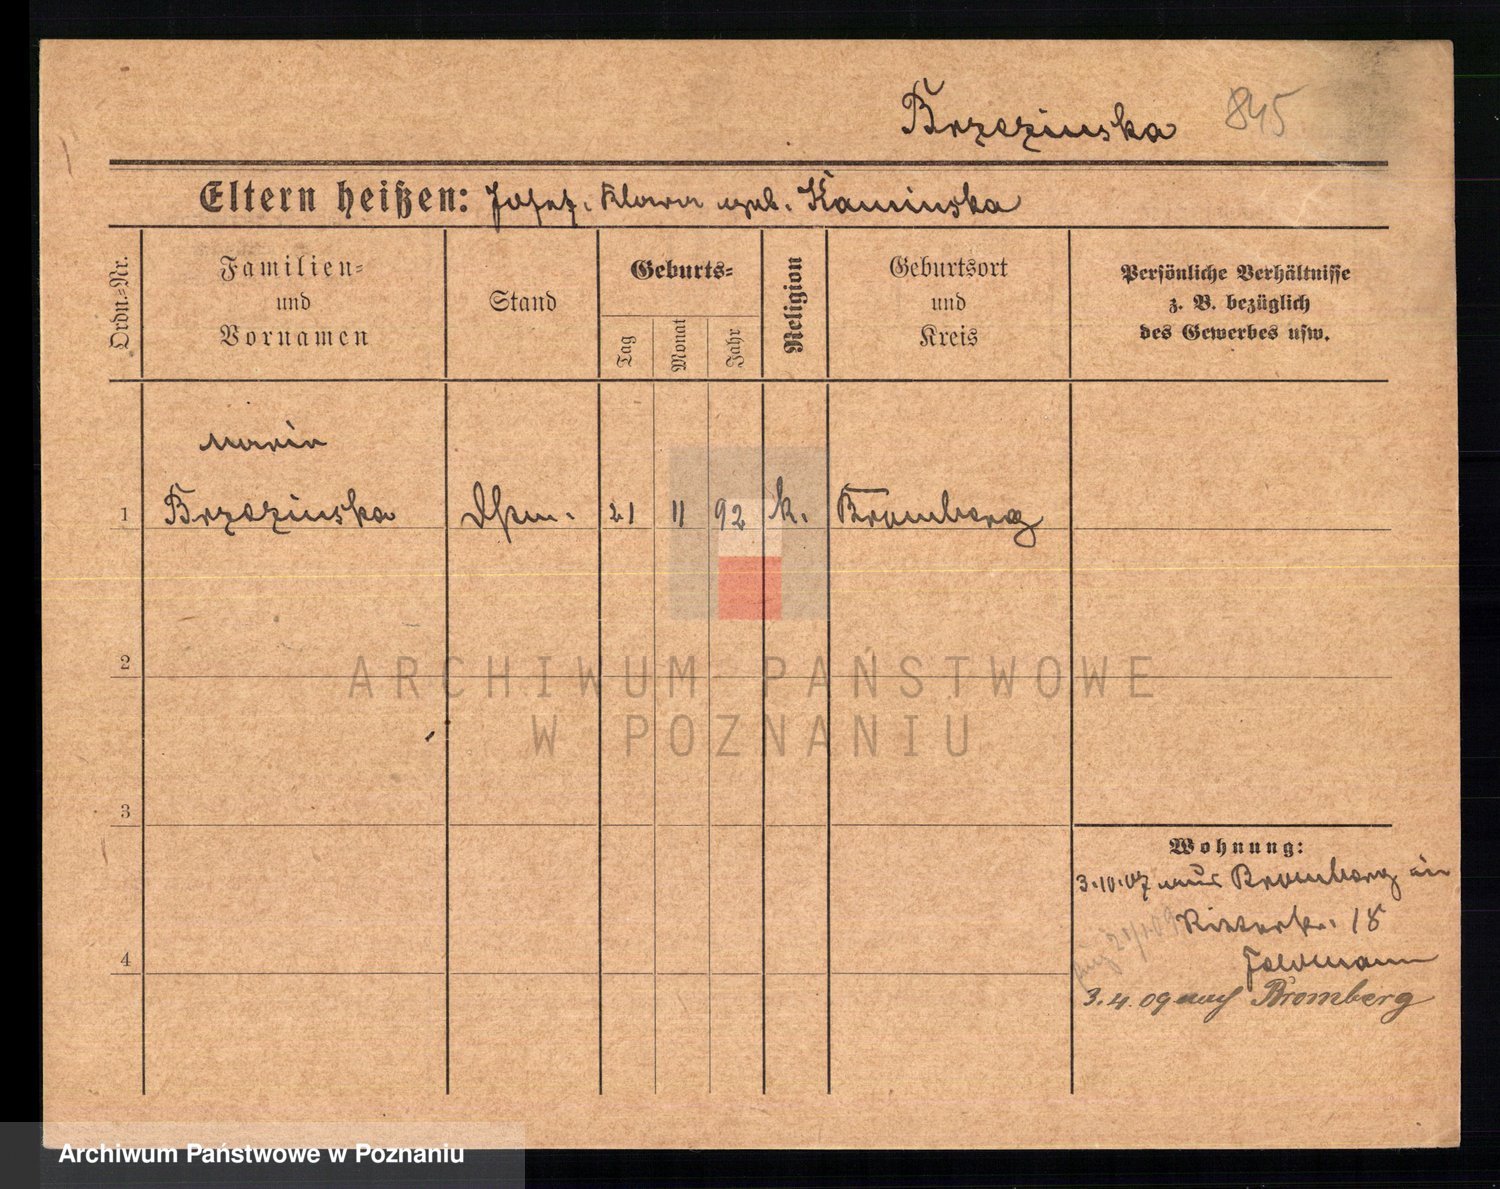 Brzezinska 845
Eltern heißen: Josef. Klara geb. Kaminska
Ordn.-Nr.
Familien-
und
Vornamen
Stand
Geburts-
Tag
Monat
Jahr
Religion
Geburtsort
und
Kreis
Persönliche Verhältnisse
z. B. bezüglich
des Gewerbes usw.
Maria
1 Brzezinska 21 11 92 k. Bromberg
2
3
4
Wohnung:
3.10.07 aus Bromberg in
Ritterstr. 18
3.4.09 auf Bromberg
ARCHIWUM PAŃSTWOWE
W POZNANIU
Archiwum Państwowe w Poznaniu